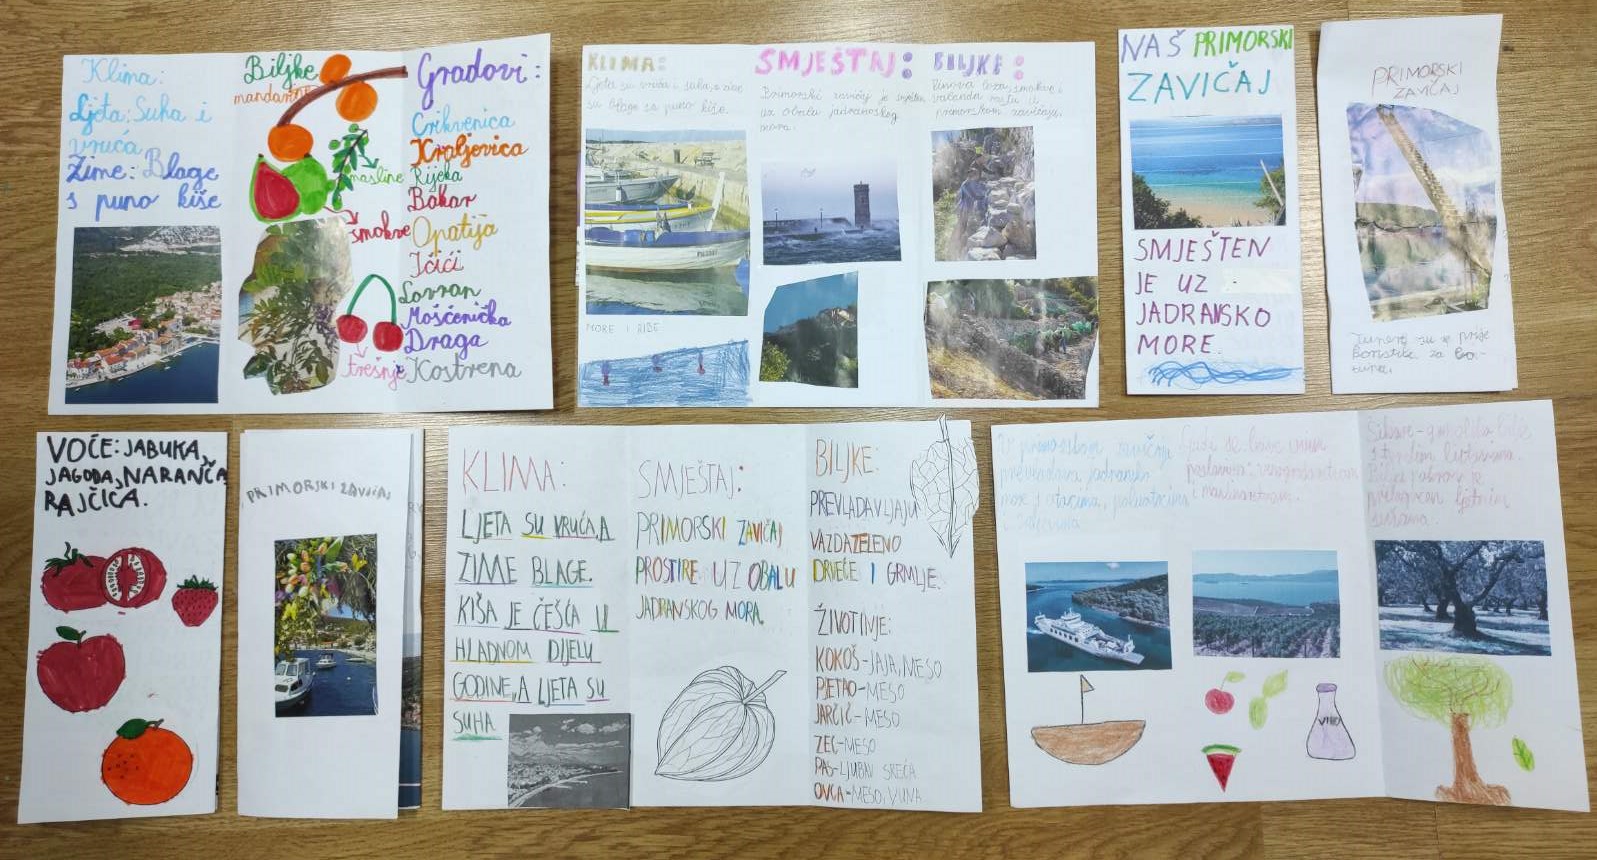 Klima:
Ljeta: Suha i
vruća
Zime: Blage
s puno kiše
Biljke
mandarine
masline
smokve
trešnje
Gradovi:
Crikvenica
Kraljevica
Rijeka
Bakar
Opatija
Ičići
Lovran
Mošćenička
Draga
Kostrena
KLIMA:
Ljeta su vruća i suha, a zime
su blage sa puno kiše.
MORE I RIBE
SMJEŠTAJ:
Primorski zavičaj je smješten
uz obalu jadranskog
mora.
BILJKE:
Vinova loza, smokva i
primorskom zavičaju.
NAŠ PRIMORSKI
ZAVIČAJ
SMJEŠTEN
JE UZ
JADRANSKO
MORE.
PRIMORSKI
ZAVIČAJ
su se prije
koristile za
VOĆE: JABUKA,
JAGODA, NARANČA
RAJČICA.
PRIMORSKI ZAVIČAJ
KLIMA:
LJETA SU VRUĆA, A
ZIME BLAGE.
KIŠA JE ČEŠĆA U
HLADNOM DIJELU
GODINE, A LJETA SU
SUHA
SMJEŠTAJ:
PRIMORSKI ZAVIČAJ
PROSTIRE UZ OBALU
JADRANSKOG MORA.
BILJKE:
PREVLADAVLJAJU
VAZDAZELENO
DRVEĆE I GRMLJE.
ŽIVOTINJE:
KOKOŠ-JAJA, MESO
PJETAO-MESO
JARČIĆ-MESO
ZEC-MESO
PAS-LJUBAV SREĆA
OVCA-MESO, VUNA
U primorskom zavičaju
prevladava jadransko
more s otocima, poluotocima
Ljudi se bave
vinogradarstvom
i maslinarstvom.
s tvrdim listovima.
prilagođen ljetnim
sušama.
VINO